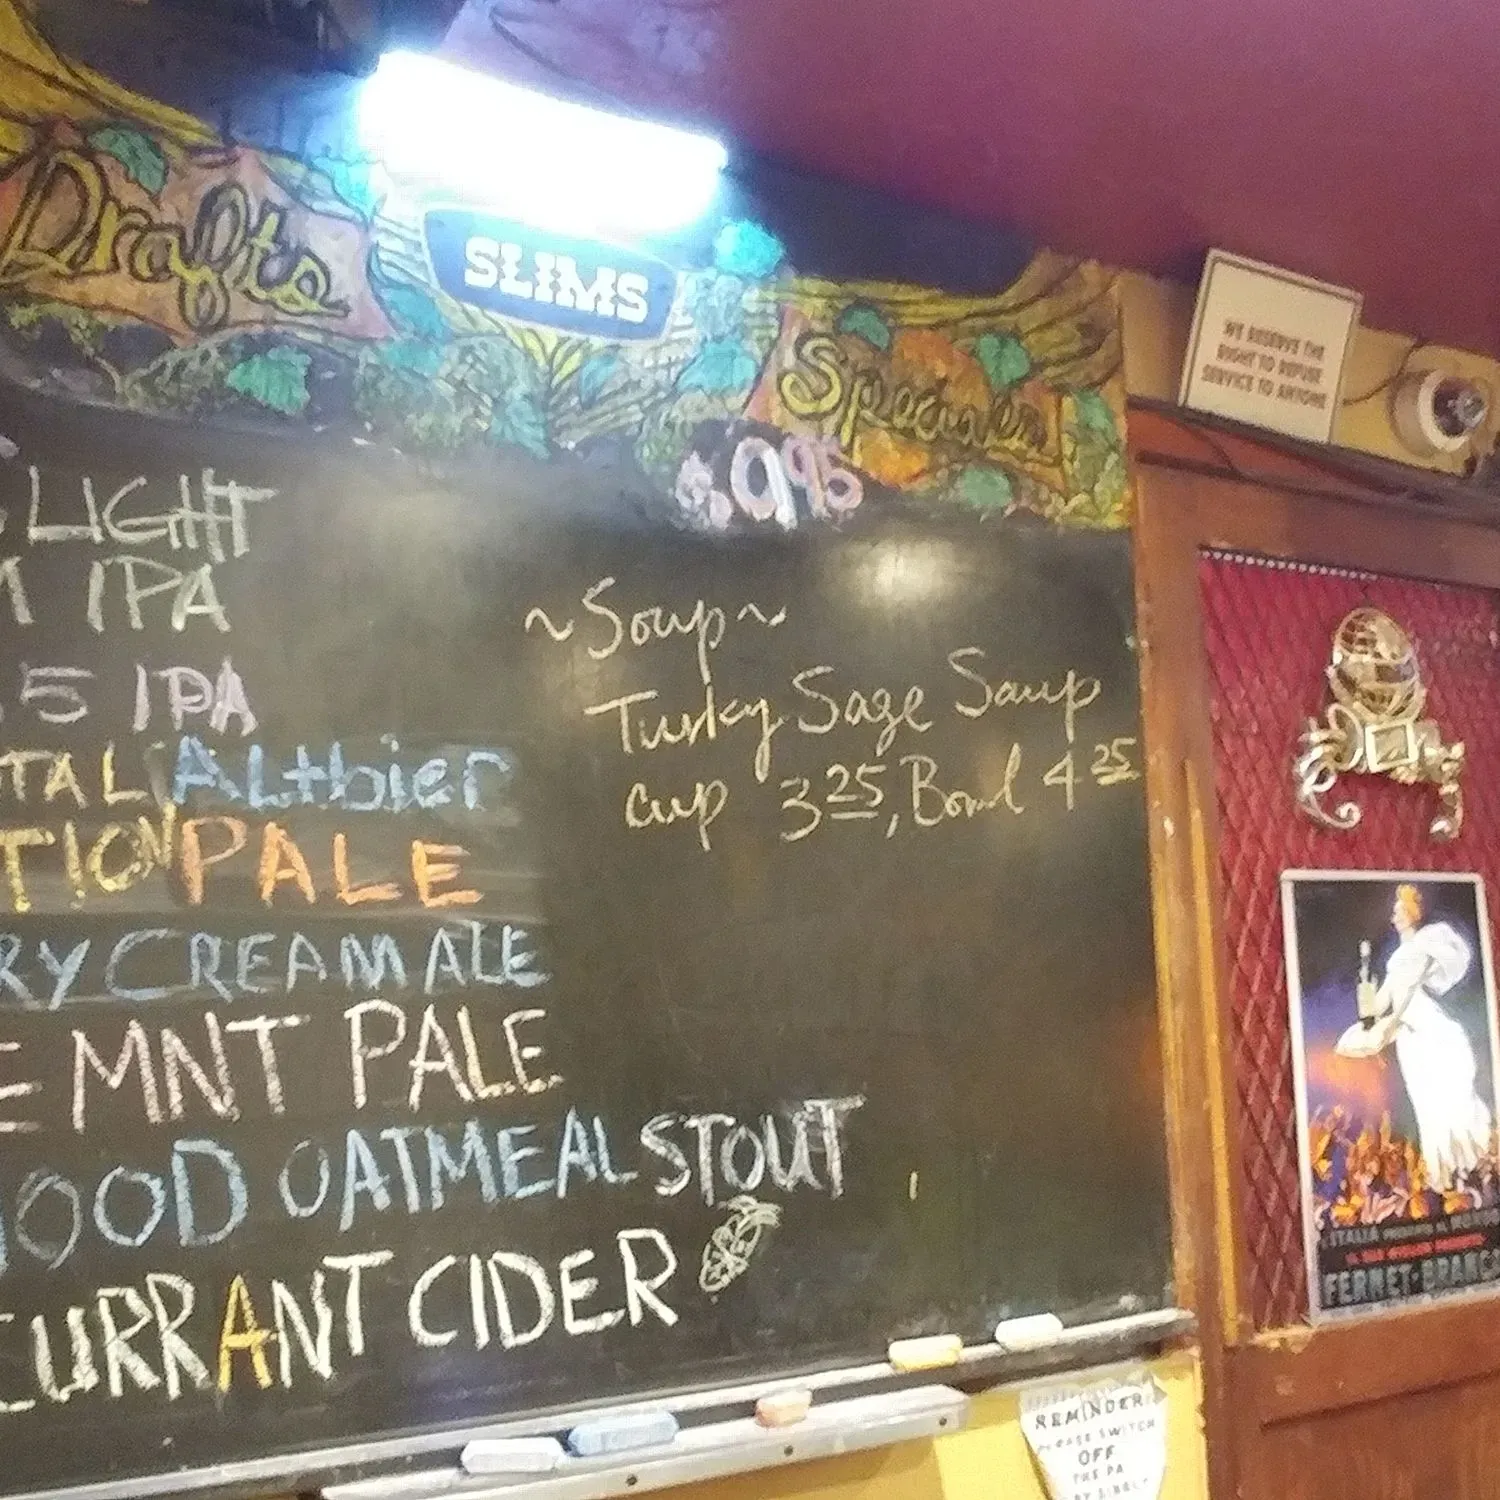 Drafts
SLIMS
Specials
WE RESERVE THE
RIGHT TO REFUSE
SERVICE TO ANYONE
9.95
LIGHT
IPA
5 IPA
TAL Altbier
TION PALE
RY CREAM ALE
E MNT PALE
OOD OATMEAL STOUT
CURRANT CIDER
~Soup~
Turky Sage Soup
cup 3 25, Bowl 4 25
REMINDER
PLEASE SWITCH
OFF
THE PA
L'ITALIA
FERNET-BRANCA